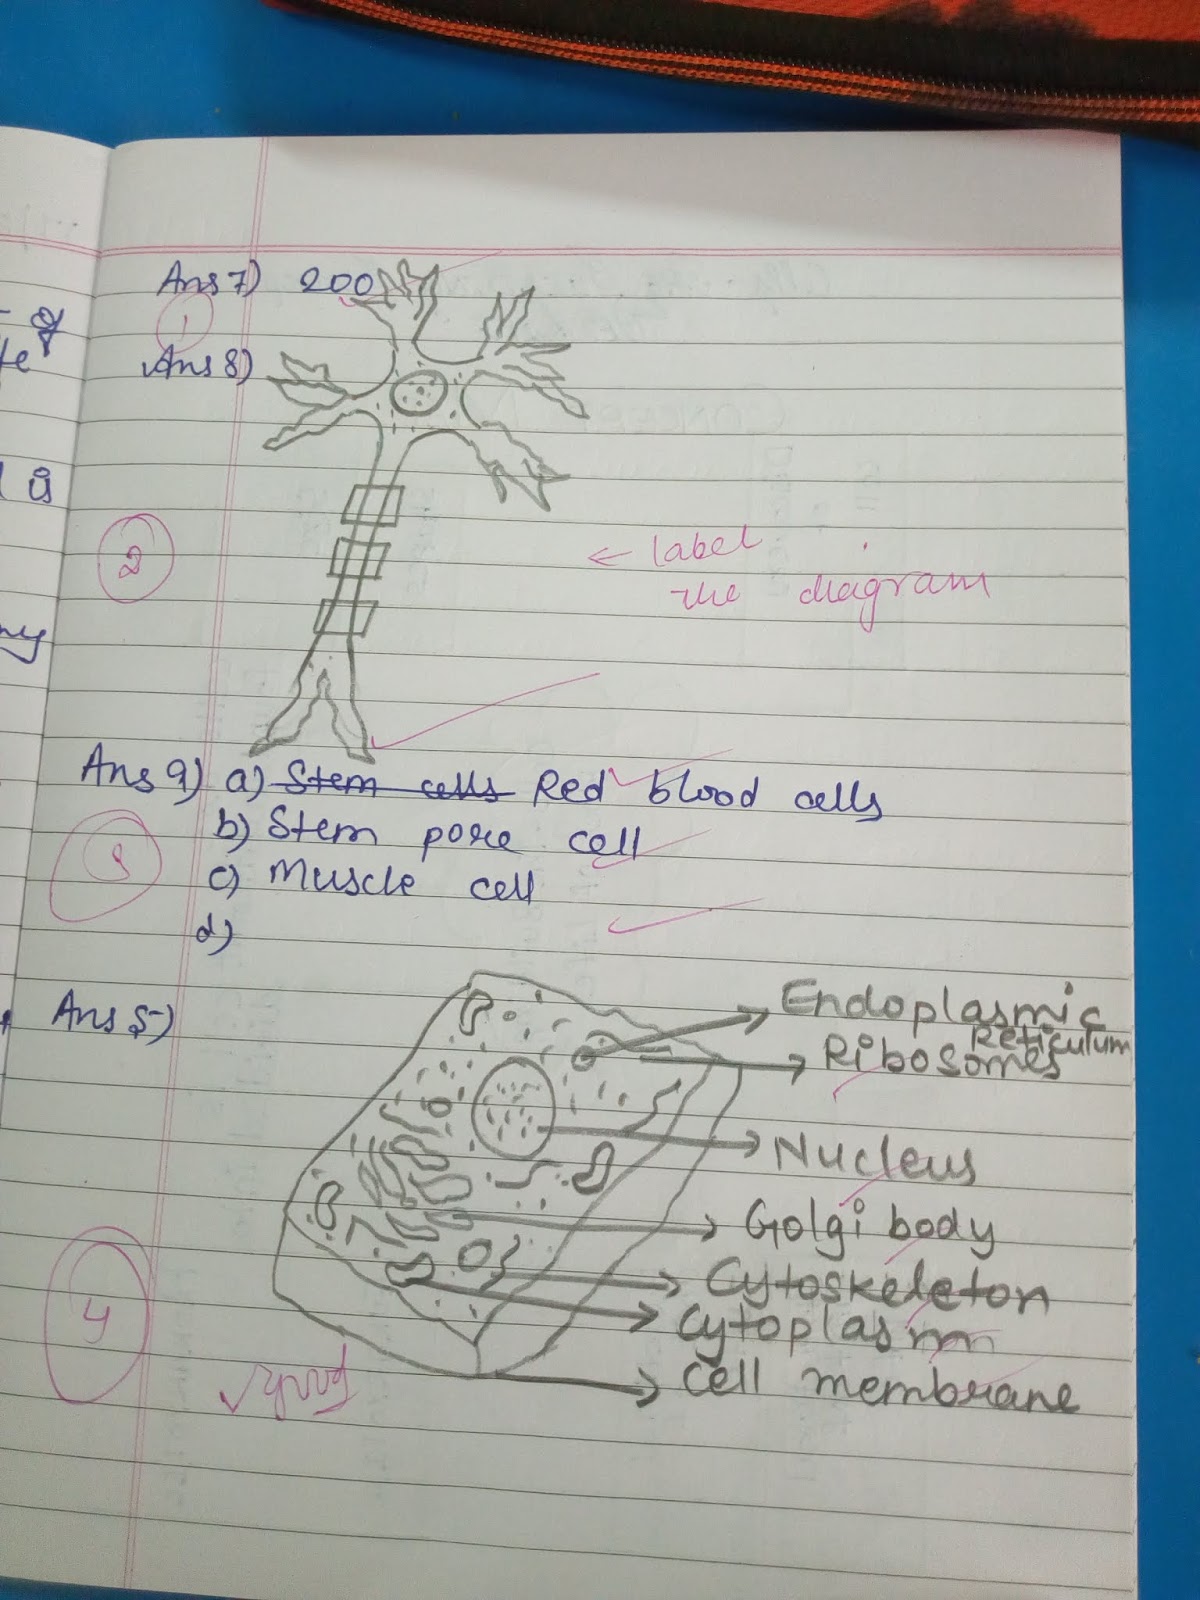 of
te
Ans 7) 200
1
Ans 8)
is
2
← label
the diagram
ny
Ans 9) a) Stem cells Red blood cells
b) Stem pore cell
3
c) Muscle cell
d)
Ans 5)
Endoplasmic
Reticulum
Ribosomes
Nucleus
Golgi body
Cytoskeleton
4
Cytoplasm
Cell membrane